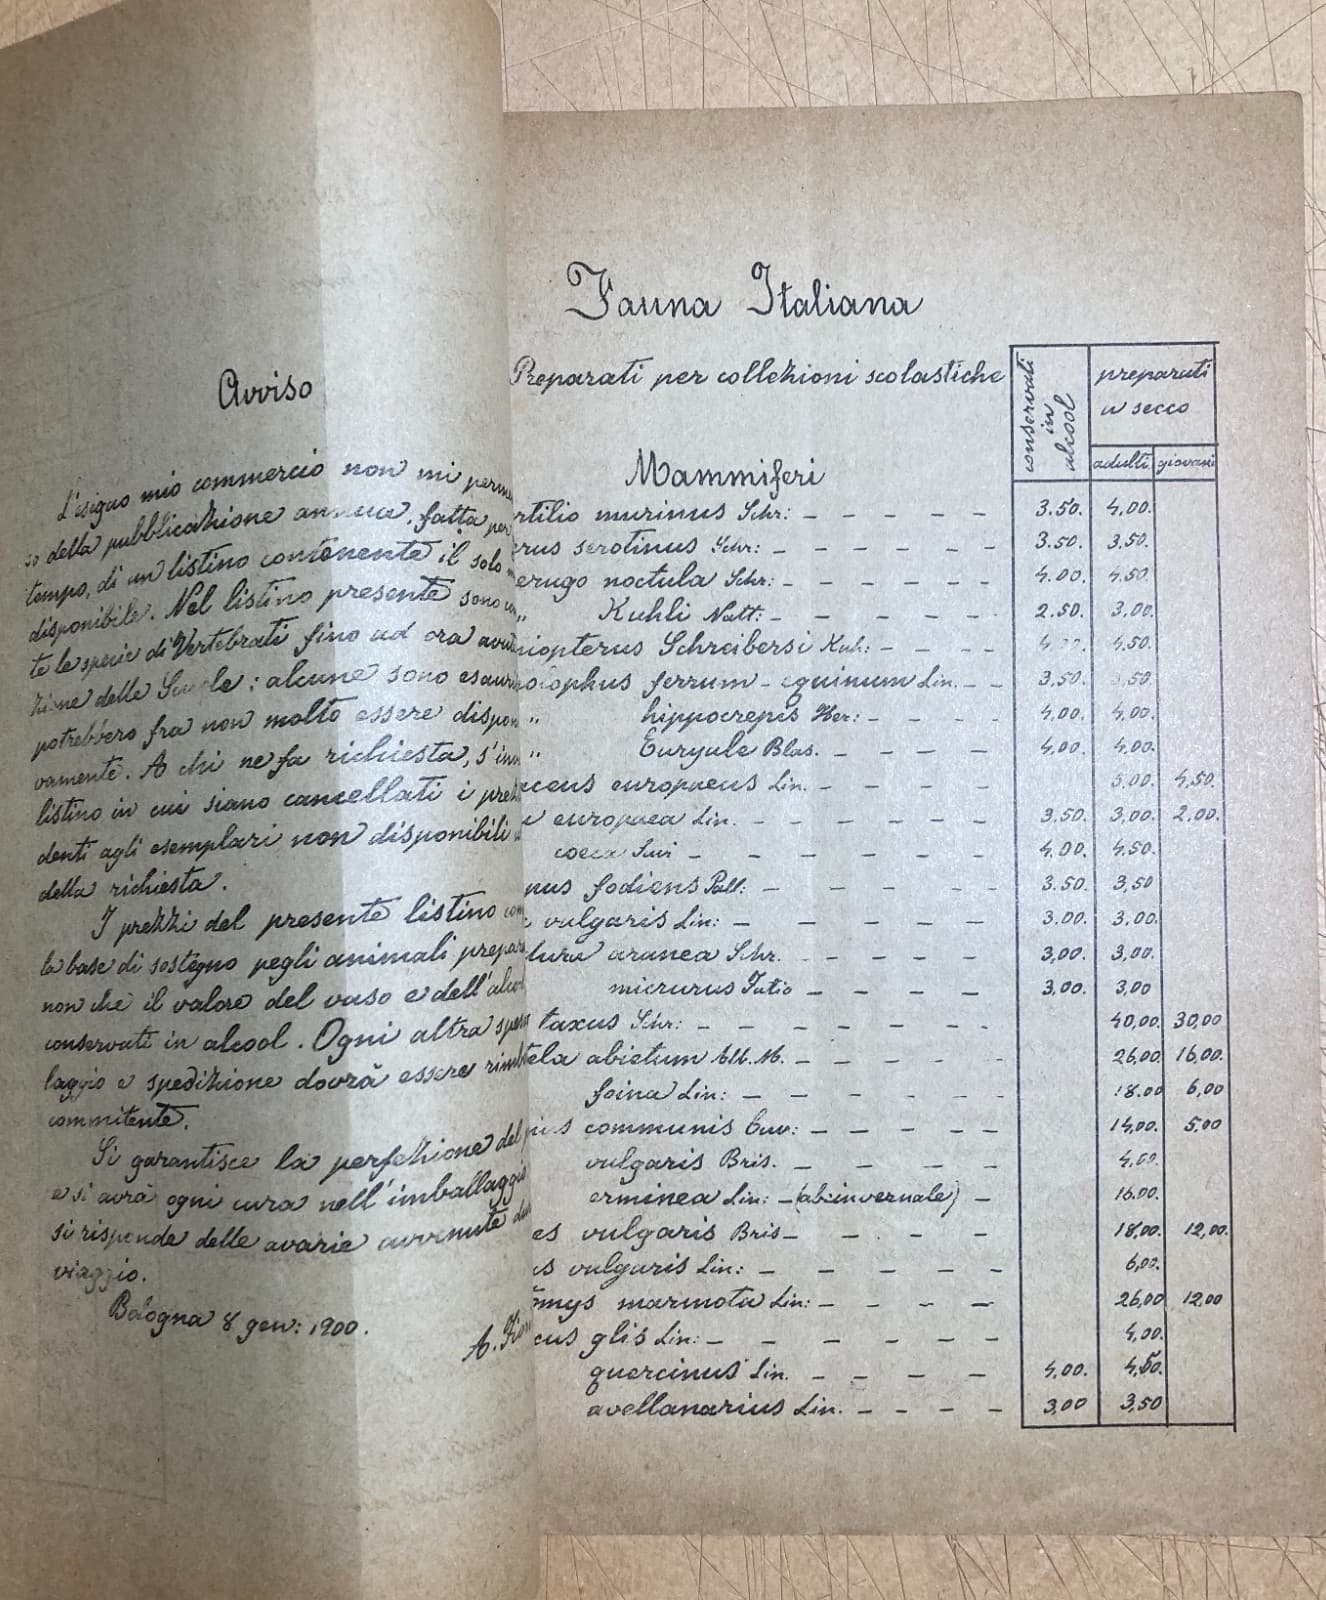 Avviso
L'esiguo mio commercio non mi perme
so della pubblicazione annua, fatta per
tempo, di un listino contenente il solo
disponibile. Nel listino presente sono
te le specie di Vertebrati fino ad ora
zione delle Scuole: alcune sono esaur
potrebbero fra non molto essere dispon
vamente. A chi ne fa richiesta, s'inv
listino in cui siano cancellati i prez
denti agli esemplari non disponibili
della richiesta.
I prezzi del presente listino com
la base di sostegno pegli animali prepar
non che il valore del vaso e dell'alcol
conservati in alcool. Ogni altra spesa
laggio e spedizione dovrà essere rimb
committente.
Si garantisce la perfezione del
e si avrà ogni cura nell'imballaggio
si risponde delle avarie avvenute du
viaggio.
Bologna 8 gen: 1900.
A.
Fauna Italiana
Preparati per collezioni scolastiche
conservati in alcool
preparati a secco
adulti giovani
Mammiferi
rtilio murinus Schr: - - - - - - 3.50. 4,00.
rus serotinus Schr: - - - - - - 3.50. 3,50.
erugo noctula Schr: - - - - - - 4.00. 4,50.
" Kuhli Natt: - - - - - 2.50. 3,00.
niopterus Schreibersi Kuh: - - - - 4,50.
olophus ferrum-equinum Lin. - - 3,50. 3,50.
" hippocrepis Her: - - - - 4,00. 4,00.
" Euryale Blas. - - - - 4,00. 4,00.
aceus europaeus Lin. - - - - - 5,00. 4,50.
a europaea Lin. - - - - - - 3.50. 3,00. 2,00.
coeca Savi - - - - - - 4,00. 4,50.
nus fodiens Pall: - - - - - - 3.50. 3,50
vulgaris Lin: - - - - - - 3.00. 3,00.
dura aranea Schr. - - - - - 3,00. 3,00.
micrurus Fatio - - - - - 3,00. 3,00
taxus Schr: - - - - - - - 40,00. 30,00
tela abietum Alb. M. - - - - - 26,00. 16,00.
foina Lin: - - - - - - 18.00 6,00
communis Cuv: - - - - - 14,00. 5,00
vulgaris Bris. - - - - - 4,00.
erminea Lin: - (ab: invernale) - 16.00.
es vulgaris Bris - - - - - 18,00. 12,00.
us vulgaris Lin: - - - - - - 6,00.
omys marmota Lin: - - - - - 26,00 12,00
cus glis Lin: - - - - - - 4,00.
quercinus Lin. - - - - - 4,00. 4,50.
avellanarius Lin. - - - - 3,00 3,50